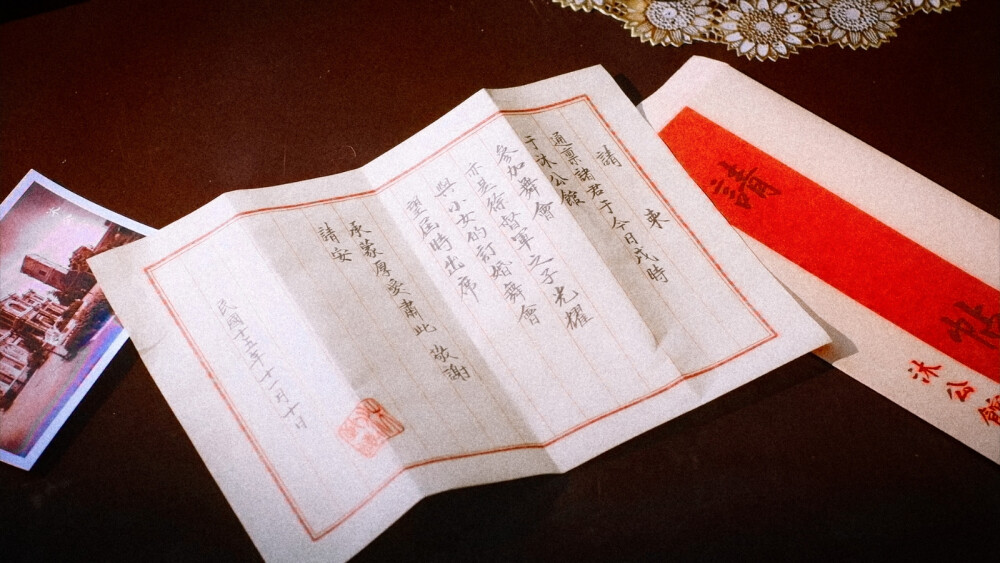 請柬
通稟諸君于今日戌時
于沐公館
參加舞會
亦是徐督軍之子光耀
與小女的訂婚舞會
望屆時出席
承蒙厚愛肅此 敬謝
請安
民國十五年十一月十日
請帖
沐公館